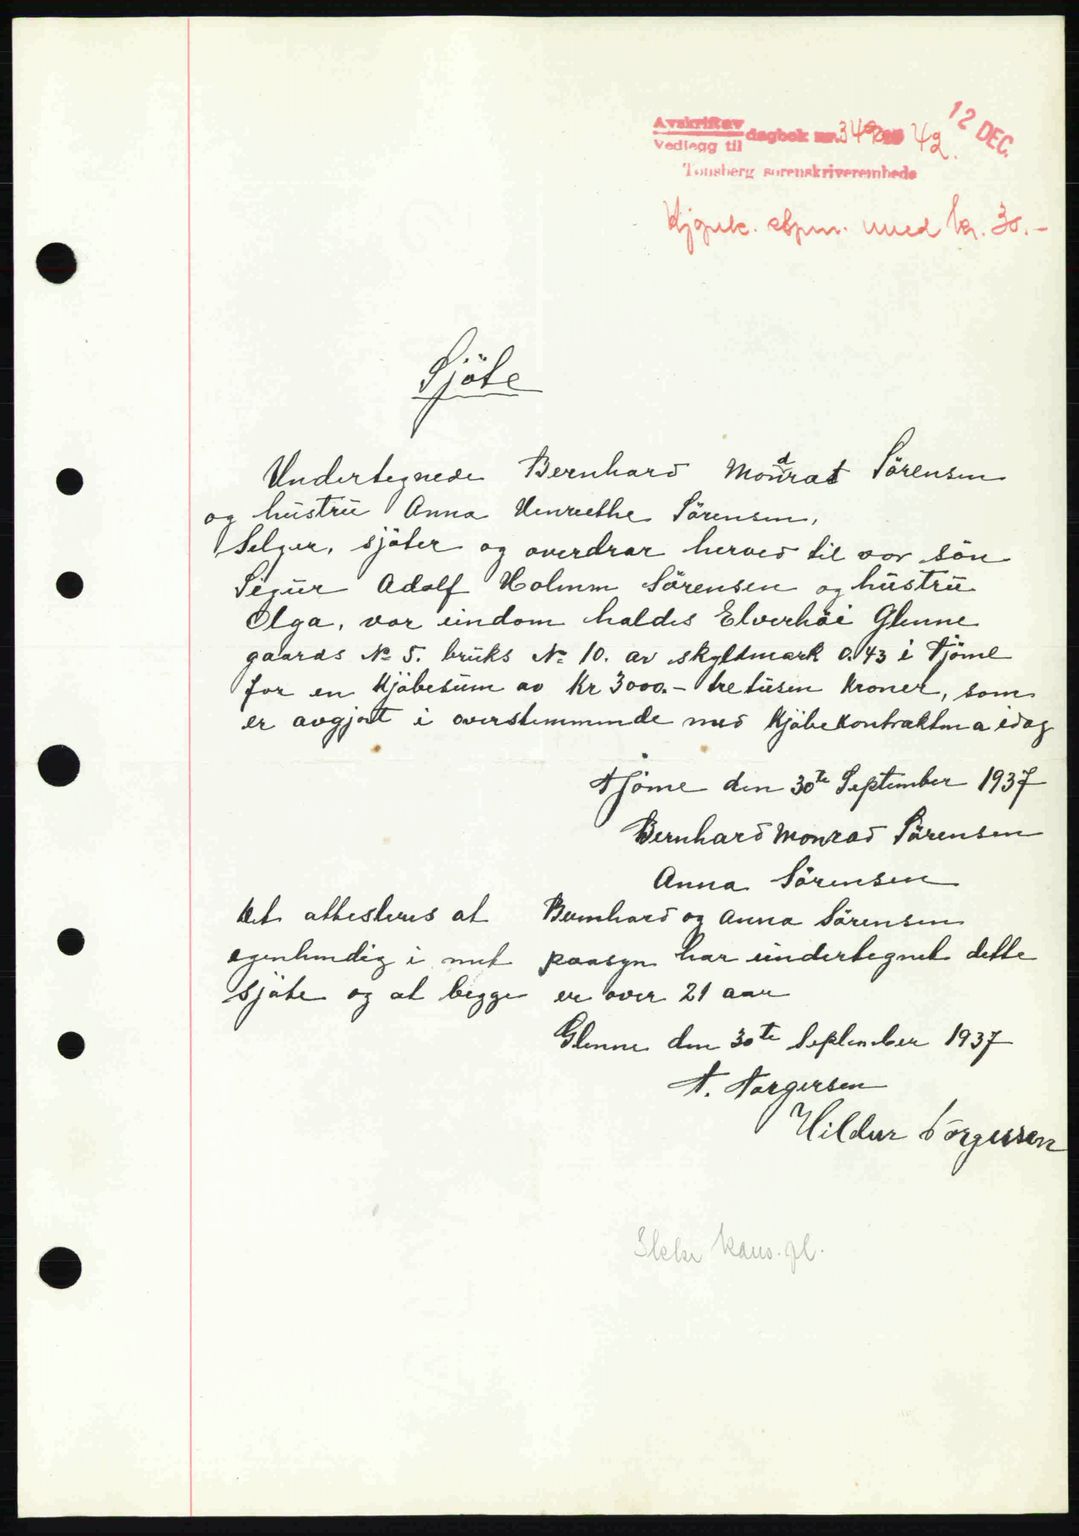 Avskrift av
Vedlegg til dagbok nr. 42.
12 DEC.
Tønsberg sorenskriverembede
med kr. 30.-
Sjöte
Undertegnede Bernhard Mondrat Sörensen
og hustru Anna Henriethe Sörensen,
Selger, sjöter og overdrar herved til vor sön
Sigur Adolf Holmm Sörensen og hustru
Olga, vor eindom haldes Elverhöi Glenne
gaards No 5. bruks No 10. av skyldmark 0.43 i Tjöme
for en Kjöbesum av Kr 3000.- tretusen Kroner, som
er avgjort i overstemmende med Kjöbekontraktm a idag
Tjöme den 30te September 1937
Bernhard Monrad Sörensen
Anna Sörensen
Det attesteres at Bernhard og Anna Sörensen
egenhendig i mit paasyn har undertegnet dette
Sjöte og at begge er over 21 aar
Glenne den 30te September 1937
T. Torgersen
Hildur Torgersen
Ikke kaus.pl.